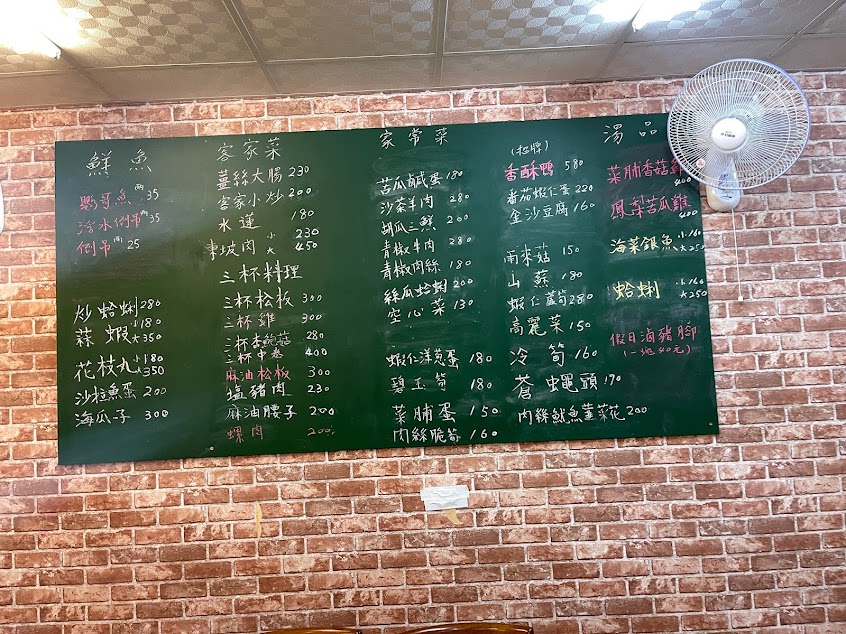 鮮魚
鸚哥魚 兩35
活水倒吊 兩35
倒吊 兩25
炒蛤蜊 280
蒜蝦 小180 大350
花枝丸 小180 大350
沙拉魚蛋 200
海瓜子 300
客家菜
薑絲大腸 230
客家小炒 200
水蓮 180
東坡肉 小230 大450
三杯料理
三杯松板 300
三杯雞 300
三杯杏鮑菇 280
三杯中卷 400
麻油松板 300
塩豬肉 230
麻油腰子 200
螺肉 200
家常菜
苦瓜鹹蛋 180
沙茶羊肉 280
胡瓜三鮮 200
青椒牛肉 280
青椒肉絲 180
絲瓜蛤蜊 200
空心菜 130
蝦仁洋葱蛋 180
碧玉筍 180
菜脯蛋 150
肉絲脆筍 160
(招牌)
香酥鴨 580
番茄蝦仁蛋 220
金沙豆腐 160
雨來菇 150
山蘇 180
蝦仁蘆筍 280
高麗菜 150
冷筍 160
蒼蠅頭 170
肉絲魷魚韮菜花 200
湯品
菜脯香菇雞
400
鳳梨苦瓜雞
400
海菜銀魚 小160 大250
蛤蜊 小160 大250
假日滷豬腳